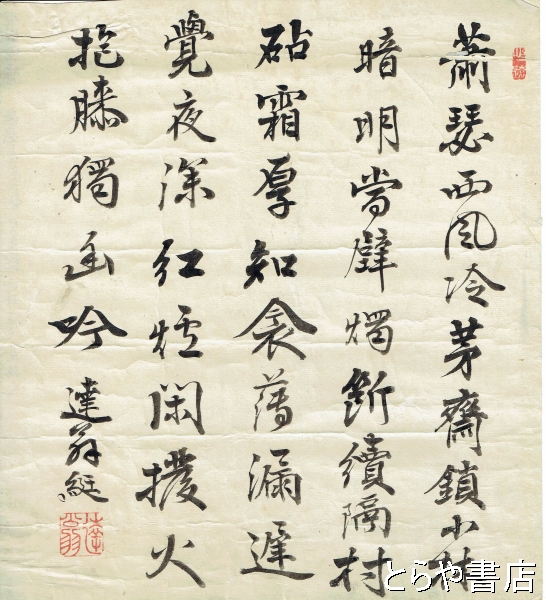 蕭瑟西風冷茅齋鎖小林
暗明當壁燭斷續隔村
砧霜厚知衾薄漏遲
覺夜深紅爐閑撥火
抱膝獨幽吟 達翁綎
達翁
とらや書店